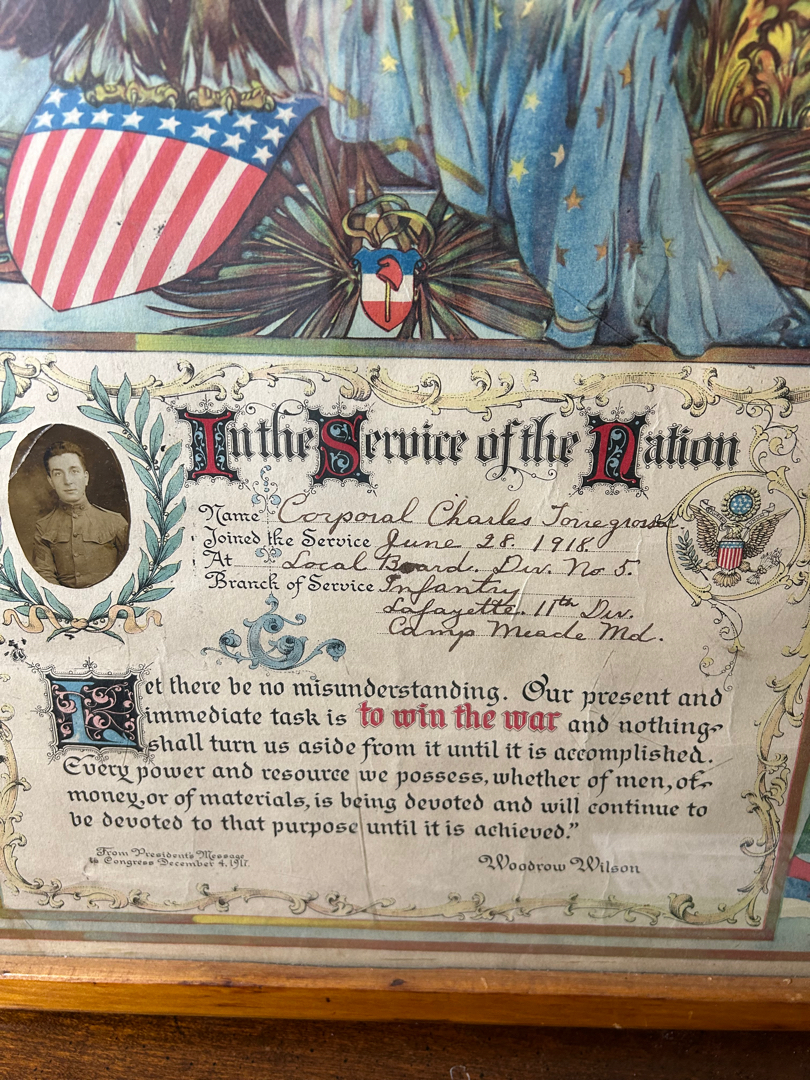 In the Service of the Nation
Name Corporal Charles Torregrossa.
Joined the Service June 28. 1918.
At Local Board. Div. No 5.
Branch of Service Infantry
Lafayette. 11th Div.
Camp Meade Md.
Let there be no misunderstanding. Our present and
immediate task is to win the war and nothing
shall turn us aside from it until it is accomplished.
Every power and resource we possess, whether of men, of
money, or of materials, is being devoted and will continue to
be devoted to that purpose until it is achieved."
From President's Message
to Congress December 4, 1917.
Woodrow Wilson